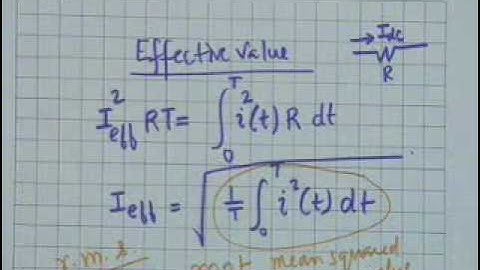 Effective value
I_dc
R
I²_eff RT = ∫₀ᵀ i²(t) R dt
I_eff = √( 1/T ∫₀ᵀ i²(t) dt )
r.m.s mean squared